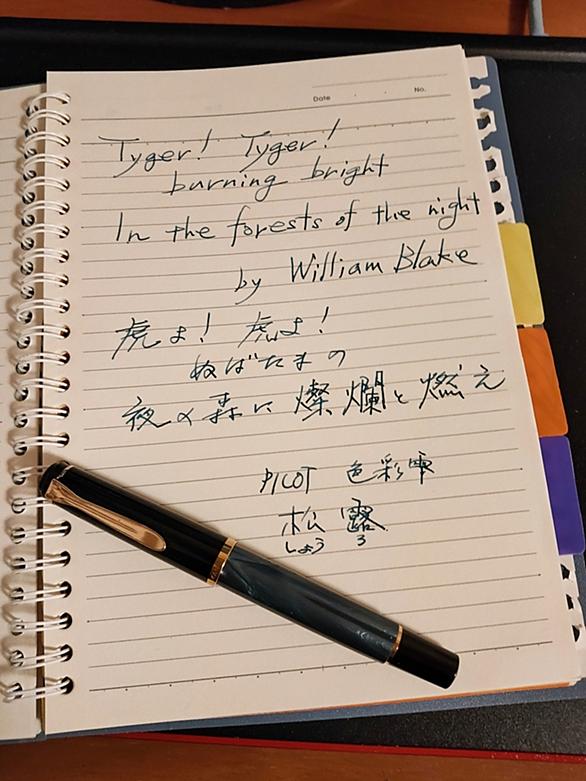 Date . . No.
Tyger! Tyger!
burning bright
In the forests of the night
by William Blake
虎よ! 虎よ!
ぬばたまの
夜の森に 燦爛と燃え
PILOT 色彩雫
松露
しょうろ